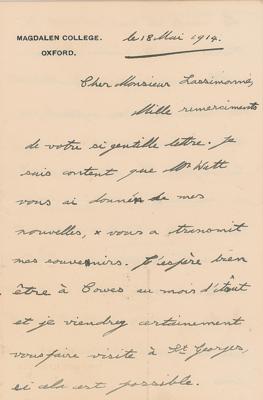 MAGDALEN COLLEGE.
OXFORD.
le 18 Mai 1914.
Cher Monsieur Lassimonne,
Mille remerciments
de votre si gentille lettre. Je
suis content que Mr Watt
vous ai donné de mes
nouvelles, & vous a transmit
mes souvenirs. J'espère bien
être à Cowes au mois d'août
et je viendrey certainement
vous faire visite à St Georges,
si cela est possible.